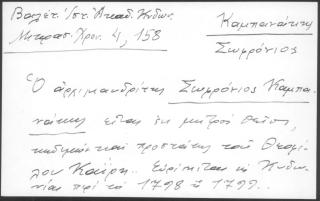 Βαλέτ. ἱστ. Ἀκαδ. Κυδων.
Μικρασ. Χρον. 4, 158
Καμπανάκης
Σωφρόνιος
Ὁ ἀρχιμανδρίτης Σωφρόνιος Καμπα-
νάκης εἶναι ἐκ μητρὸς θεῖος,
κηδεμὼν καὶ προστάτης τοῦ Θεοφί-
λου Καΐρη. Εὑρίσκεται ἐν Κυδω-
νίαις πρὶ τὸ 1798 ἢ 1799.